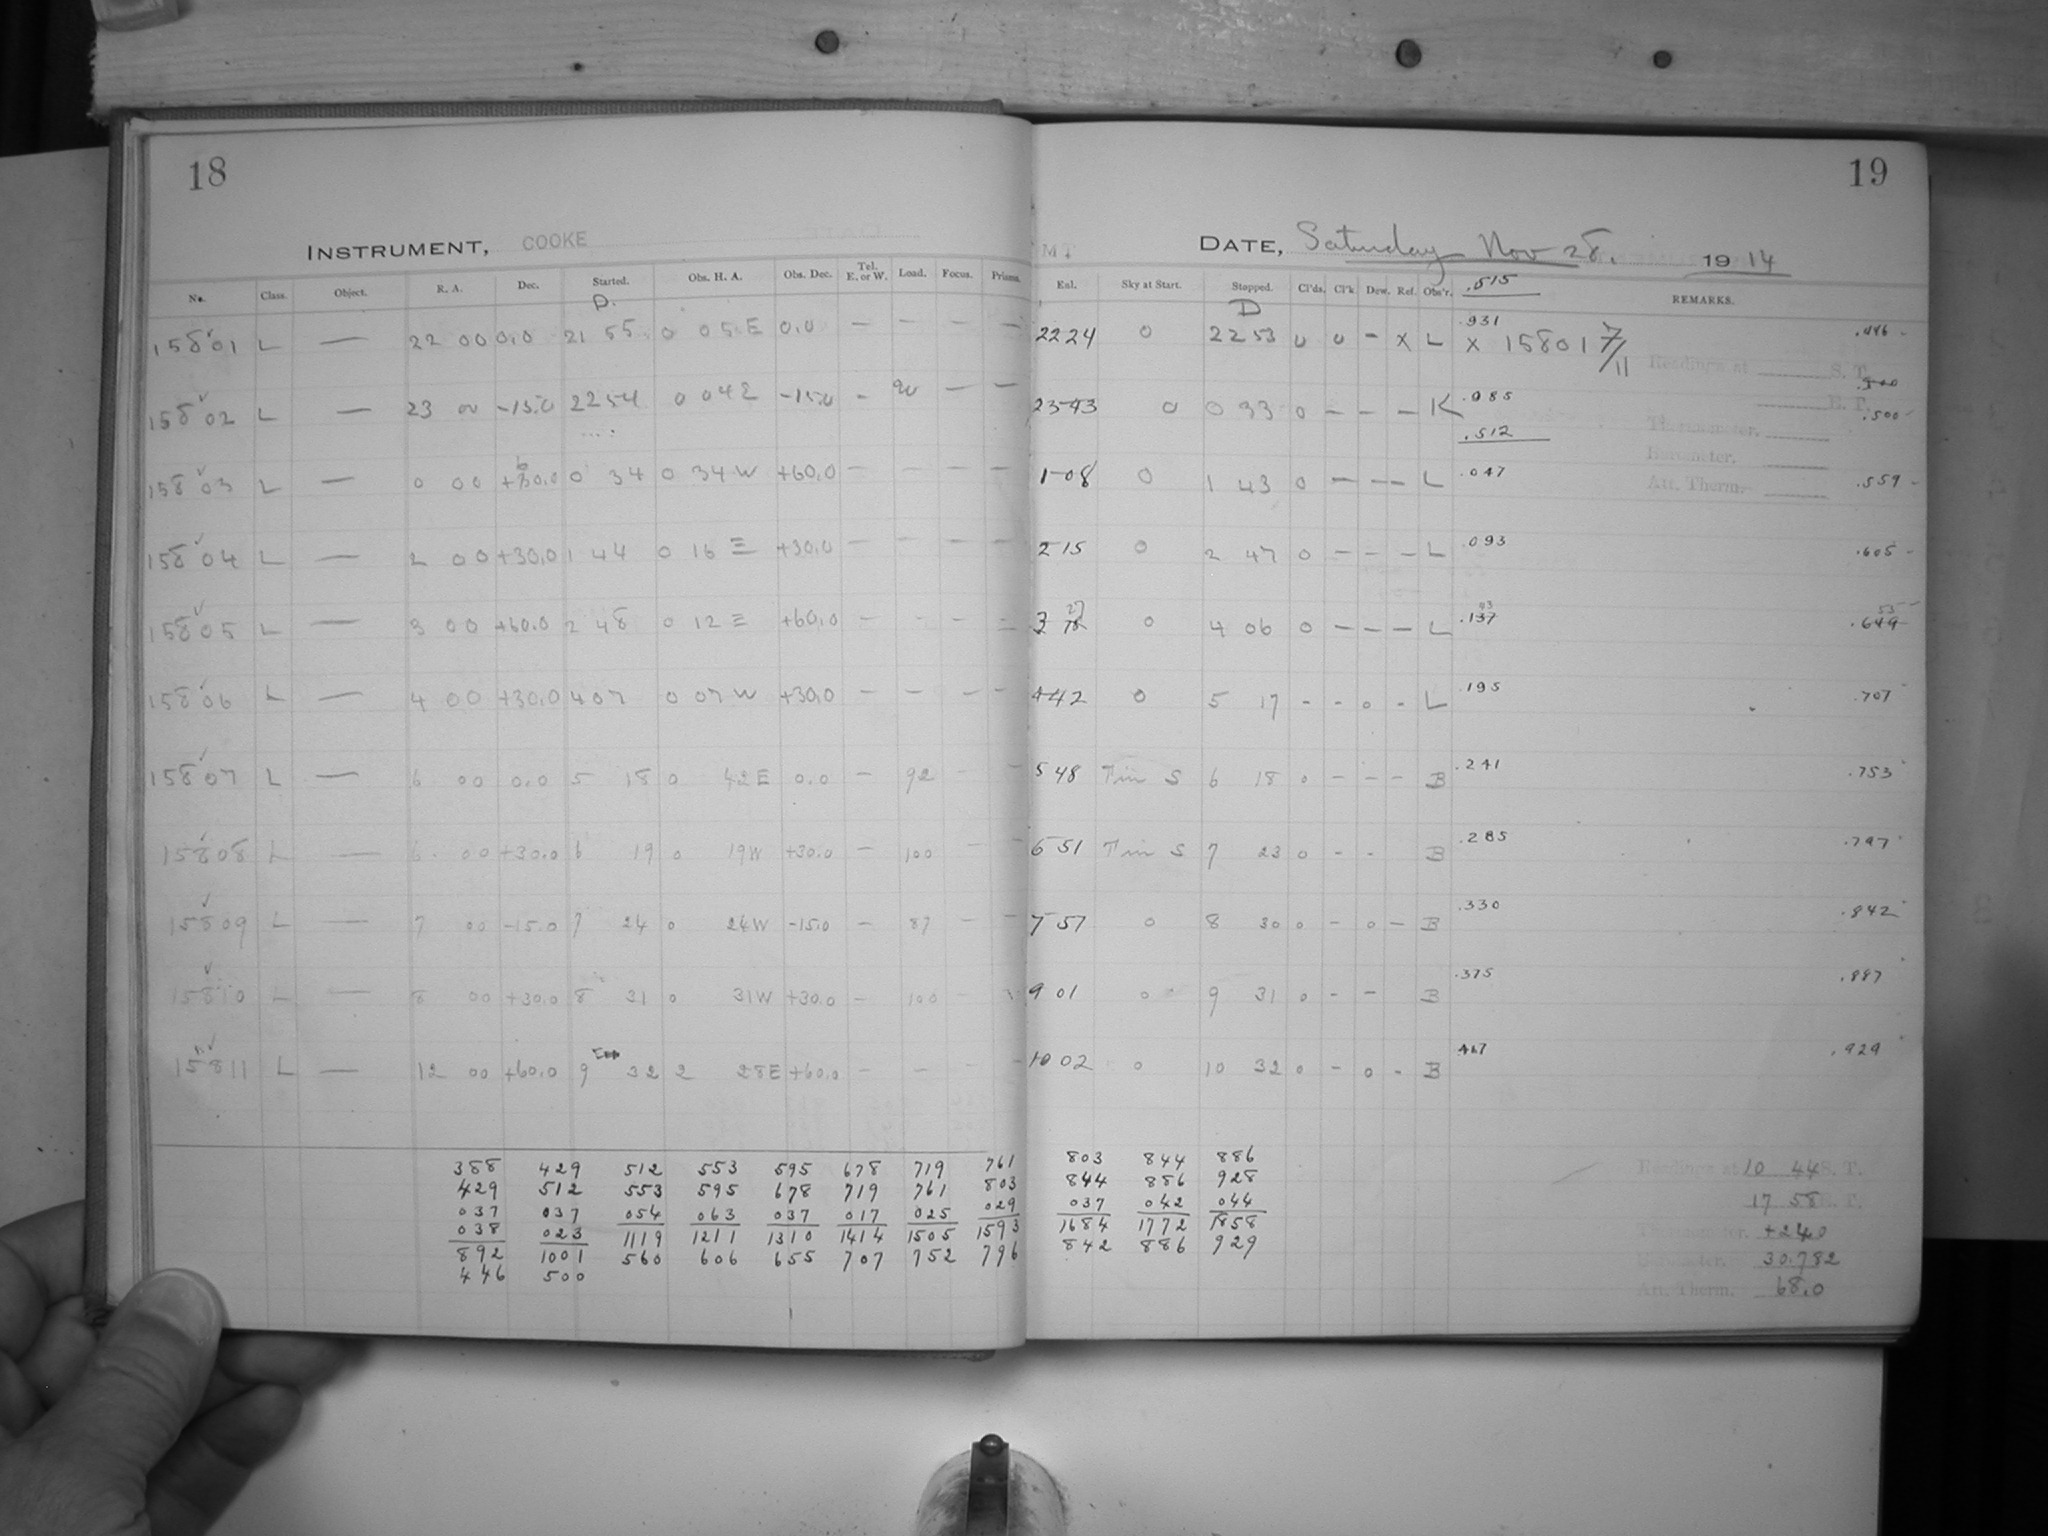 18
INSTRUMENT, COOKE
No. Class. Object. R. A. Dec. Started. Obs. H. A. Obs. Dec. Tel. E. or W. Load. Focus. Prisms.
D.
15801 L — 22 00 0.0 21 55 0 05 E 0.0 — — — —
15802 L — 23 00 -15.0 22 54 0 04 E -15.0 - 90 — —
15803 L — 0 00 0 34 0 34 W +60.0 — — — —
15804 L — 2 00 +30.0 1 44 0 16 E +30.0 — — — —
15805 L — 3 00 +60.0 2 48 0 12 E +60.0 — - - —
15806 L — 4 00 +30.0 4 07 0 07 W +30.0 — — — —
15807 L — 6 00 0.0 5 18 0 42 E 0.0 — 92 - —
15808 L — 6 00 +30.0 6 19 0 19 W +30.0 — 100 — —
15809 L — 7 00 -15.0 7 24 0 24 W -15.0 — 87 — —
15810 L — 8 00 +30.0 8 31 0 31 W +30.0 — 100 -
15811 L — 12 00 +60.0 9 32 2 28 E +60.0 — — — —
388 429 512 553 595 678 719 761
429 512 553 595 678 719 761 803
037 037 054 063 037 017 025 029
038 023 1119 1211 1310 1414 1505 1593
892 1001 560 606 655 707 752 796
446 500
19
DATE, Saturday Nov 28. 1914
Eal. Sky at Start. Stopped. Cl'ds. Cl'k Dew. Ref. Obs'r. .515 REMARKS.
D
22 24 0 22 53 0 0 - X L .931 X 15801 7/11 .446
Readings at S. T.
23 43 0 0 33 0 - - - K .985 .500
E. T.
.512
Thermometer.
Barometer.
1 08 0 1 43 0 — — — L .047 .559
Att. Therm.
2 15 0 2 47 0 - - - L .093 .605
3 27 0 4 06 0 — — — L .137 43 .649 53
4 42 0 5 17 - - 0 - L .195 .707
5 48 S 6 18 0 - - - B .241 .753
6 51 S 7 23 0 - - B .285 .797
7 57 0 8 30 0 - 0 - B .330 .842
9 01 0 9 31 0 - - B .375 .887
10 02 0 10 32 0 - 0 - B .929
803 844 886
844 886 928
037 042 044
1684 1772 1858
842 886 929
Readings at 10 44 S. T.
17 58 E. T.
Thermometer. +24.0
Barometer. 30.782
Att. Therm. 68.0